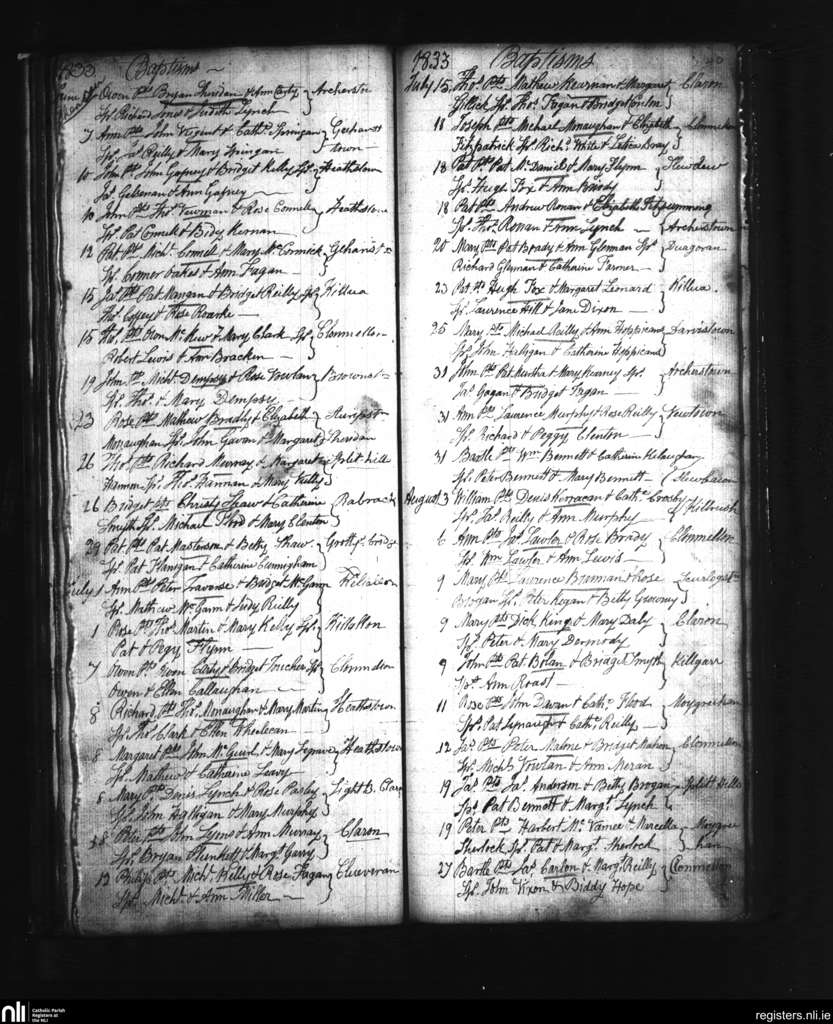 1833 Baptisms
Owen Pts Bryan Sheridan & Ann Carty Archerstn
Sps Richard Jones & Judith Lynch
7 Ann Pts John Nugent & Cathe Springan Gerhards
Sps Jas Reilly & Mary Springan town
10 John Pts John Gafney & Bridget Kelly Sps Heathstown
Jas & Ann Gafney
10 John Pts Thos Newman & Rose Heathstown
Sps Pat & Bidy Kernan
12 Pat Pts Michl Connell & Mary McCormick
Sps Conner Oakes & Ann Fagan
15 Jas Pts Pat Mangan & Bridget Reilly Sps Killua
Thos & Rose Roarke
15 Pts Owen & Mary Clark Sps Clonmellon
Robert Lewis & Ann Bracken
19 John Pts Michl Dempsey & Rose Browns
Sps Thos & Mary Dempsey
23 Rose Pts Mathew Bradly & Elizabeth
Monaughan Sps John Gavan & Margaret Sheridan
26 Thos Pts Richard Murray & Margaret Split hill
Hannon Sps Thos Hannan & Mary Kelly
26 Bridget Pts Christy Shaw & Catherine
Smyth Sps Michael Flood & Mary Clenton
29 Pat Pts Pat Masterson & Betty Shaw
Sps Pat Flanigan & Catherine Cunnigham
July 1 Ann Pts Peter Traverse & Bridget McGann
Sps Mathew McGann & Judy Reilly
1 Rose Pts Thos Martin & Mary Kelly Sps Killallon
Pat & Peggy Flynn
7 Owen Pts Owen Carty & Bridget Sps Clonmellon
Owen & Ellen Callaughan
8 Richard Pts Thos Monaughan & Mary Martin Heathstown
Sps Thos Clark & Ellen
8 Margaret Pts John McGuire & Mary Heathstown
Sps Mathew & Catharine Leavy
8 Mary Pts Denis Lynch & Rose Light B. Claron
Sps John Halligan & Mary Murphy
Peter Pts John Lyons & Ann Murray Claron
Sps Bryan Plunkett & Margt Garry
12 Philip Pts Michl Kelly & Rose Fagan
Sps Michl & Ann Miller
1833 Baptisms
July 15 Thos Pts Mathew Kearnan & Margaret Claron
Sps Thos Fagan & Bridget
18 Joseph Pts Michael Monaughan & Elizabeth
Fitzpatrick Sps Richd White & Bray
18 Pat Pts Pat McDaniel & Mary Flynn
Sps Hugh Fox & Ann Brady
18 Pat Pts Andrew Ronan & Elizabeth Fitzsimmons
Sps Thos Ronan & Ann Lynch Archerstown
20 Mary Pts Pat Brady & Ann Glennan Sps
Richard Glennan & Catharine Farmer
23 Pat Pts Hugh Fox & Margaret Leonard Killua
Sps Laurence Hill & Jane Dixon
25 Mary Pts Michael Reilly & Ann
Sps John Halligan & Catherine
31 John Pts Pat Murtha & Mary Kearney Sps Archerstown
Jas Gagan & Bridget Fagan
31 Ann Pts Laurence Murphy & Rose Reilly Newtown
Sps Richard & Peggy Clenton
31 Bartle Pts Wm Bennett & Catherine
Sps Peter Bennett & Mary Bennett
August 3 William Pts Denis & Cathe Crosby Kilrush
Sps Jas Reilly & Ann Murphy
6 Ann Pts Jas Lawler & Rose Brady Clonmellon
Sps Wm Lawler & Ann Lewis
9 Mary Pts Laurence Brennan & Rose
Brogan Sps Peter Kegan & Betty
9 Mary Pts Dick King & Mary Daly Claron
Sps Peter & Mary Dermody
9 John Pts Pat Bolan & Bridget Smyth Killgarr
Ann
11 Rose Pts John Devan & Cathe Flood
Sps Pat & Cathe Reilly
12 Jas Pts Peter Malone & Bridget Mahon Clonmellon
Sps Michl & Ann
19 Jas Pts Jas Anderson & Betty Brogan Split hills
Sps Pat Bennett & Margt Lynch
19 Peter Pts Harbert McVamee & Marcella
Sherlock Sps Pat & Margt Sherlock
27 Bartle Pts Jas Carlon & Margt Reilly Clonmellon
Sps John Nixon & Biddy Hope
nli Catholic Parish
Registers at
the NLI
registers.nli.ie